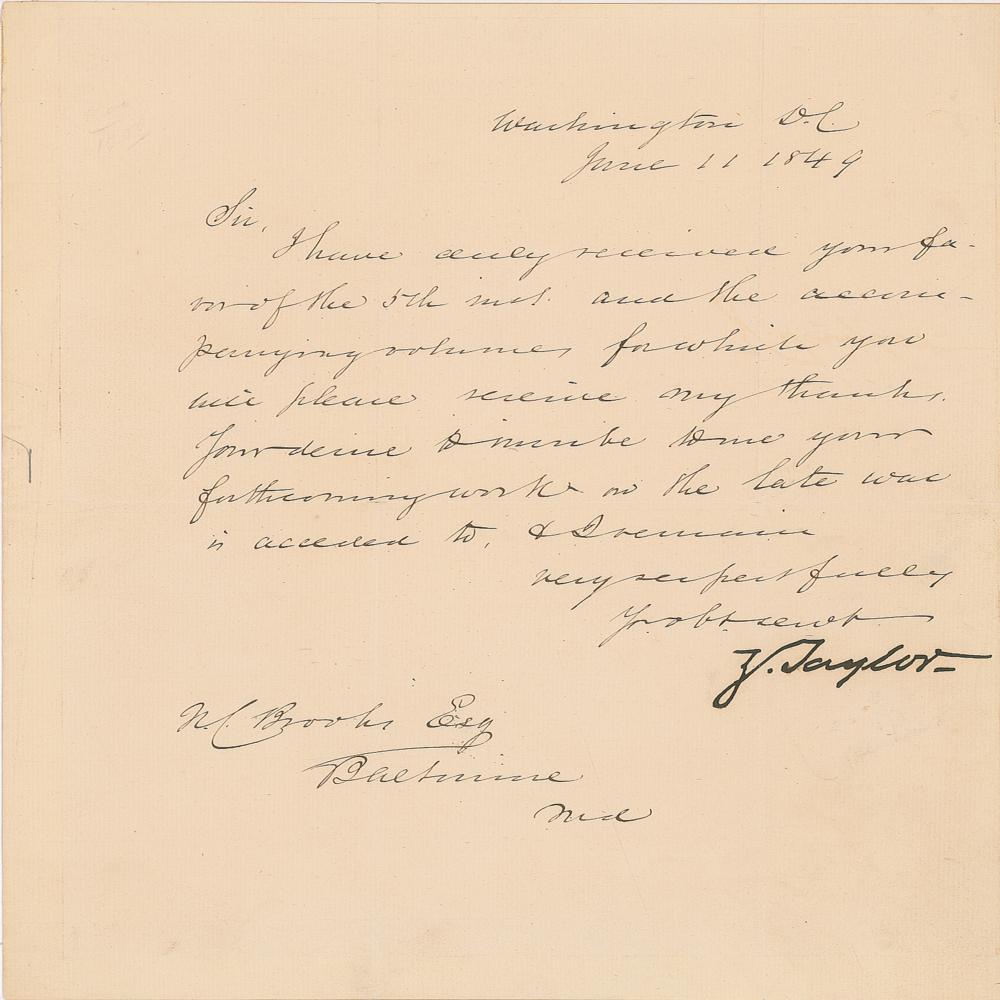 Washington D.C.
June 11 1849
Sir,
I have duly received your fa-
vor of the 5th inst. and the accom-
panying volumes for which you
will please receive my thanks.
Your desire to inscribe to me your
forthcoming work on the late war
is acceded to, & I remain
very respectfully
Yr. obt. servt
Z. Taylor
N.C. Brooks Esq
Baltimore
Md